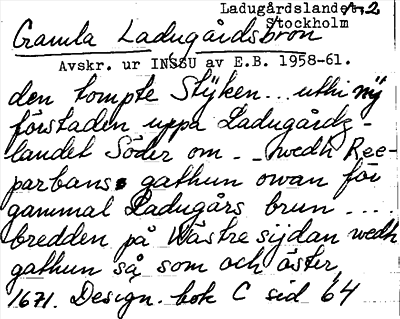 Ladugårdslandet, 2
Stockholm
Gamla Ladugårdsbron
Avskr. ur INSSU av E.B. 1958-61.
den tompte Stÿken... uthi nÿ
förstaden uppa Ladugårdz-
landet Söder om - - wedh Ree-
parbans gathun owan för
gammal Ladugårs brun ...
bredden på Wästre sijdan wedh
gathun så som och öster,
1671. Design. bok C sid 64